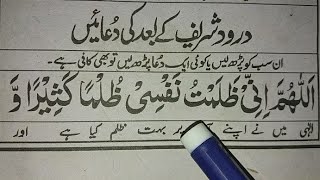 درود شریف کے بعد کی دُعائیں
ان سب کو پڑھ لیں یا کوئی ایک دعا پڑھ لیں تو بھی کافی ہے۔
اَللّٰهُمَّ اِنِّیْ ظَلَمْتُ نَفْسِیْ ظُلْمًا کَثِیْرًا وَّ
الٰہی میں نے اپنے پر بہت ظلم کیا ہے اور